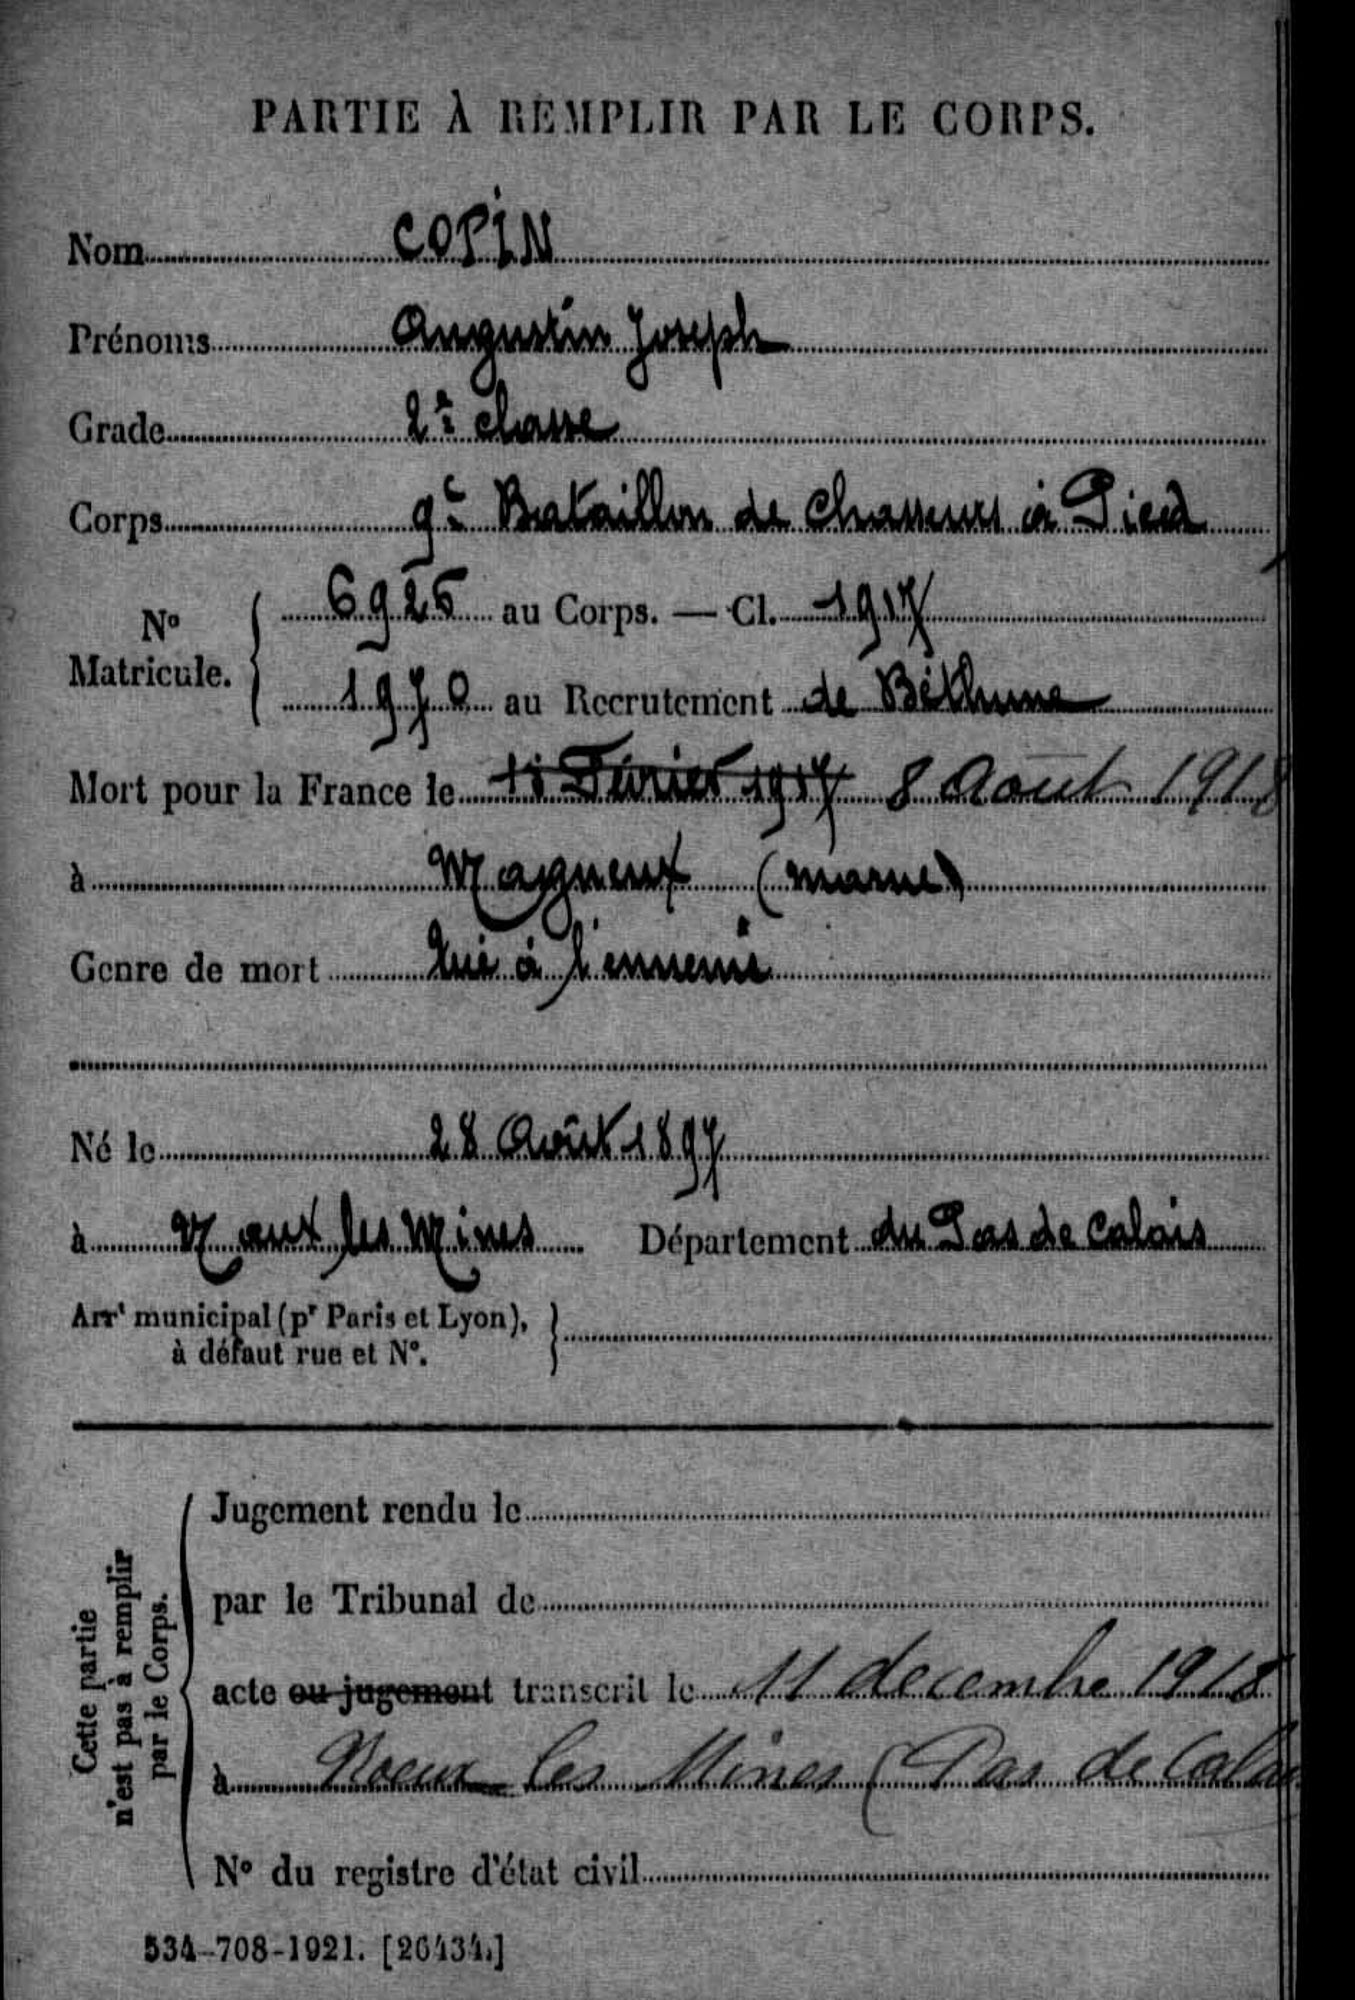 PARTIE À REMPLIR PAR LE CORPS.
Nom COPIN
Prénoms Augustin Joseph
Grade 2e classe
Corps 9e Bataillon de Chasseurs à Pied
No Matricule. { 6925 au Corps. — Cl. 1917
1970 au Recrutement de Béthune
Mort pour la France le 11 Février 1917 8 Août 1918
à Magneux (Marne)
Genre de mort tué à l'ennemi
Né le 28 Août 1897
à Nœux les Mines Département du Pas de Calais
Arrt municipal (pr Paris et Lyon),
à défaut rue et No.
Cette partie
n'est pas à remplir
par le Corps.
Jugement rendu le
par le Tribunal de
acte ou jugement transcrit le 11 decembre 1918
à Noeux les Mines (Pas de Calais
No du registre d'état civil
534-708-1921. [26434.]